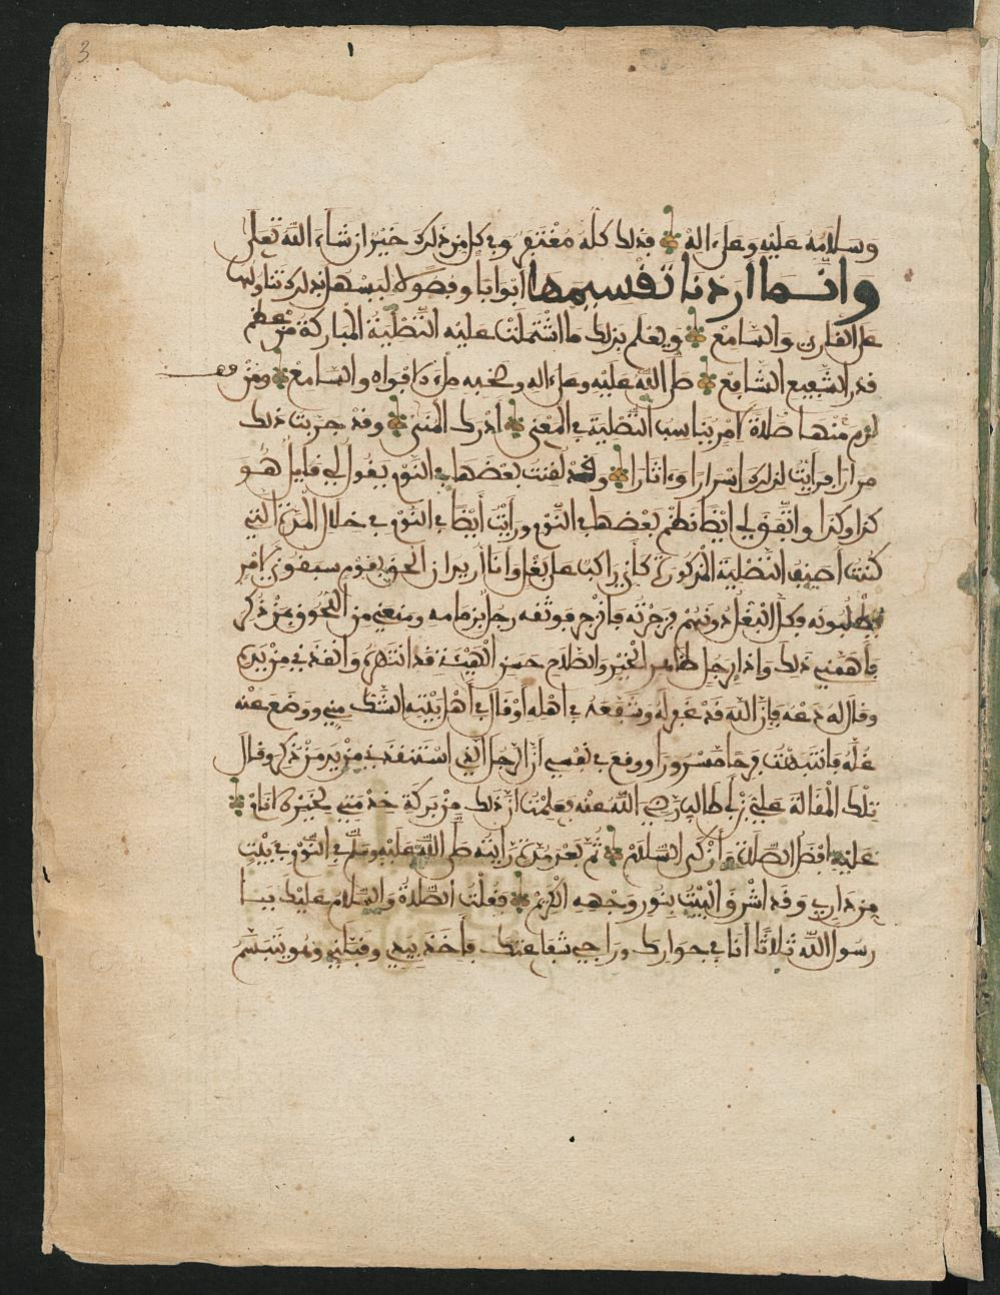 3
وسلامه عليه وعلى ءاله فذلك كله مغتفر وفي كل من ذلك خير ان شاء الله تعلى
وانما اردنا تقسيمها ابوابا وفصولا ليسهل بذلك تناولها
على القارئ والسامع ويعلم بذلك ما اشتملت عليه التصلية المباركة من عظم
قدر الشفيع الشافع صلى الله عليه وعلى اله وصحبه ملء الافواه والمسامع ومن
لزم منها صلاة لامر يناسب التصلية في المعنى ادرك المنى وقد جربت ذلك
مرارا فرايت لذلك اسرارا وءاثارا وقد لقنت بعضها في النوم يقول لي قايل هو
كذا وكذا واتفق لي ايضا نظم بعضها في النوم ورايت ايضا في النوم في خلال المدة التي
كنت اصنف التصلية المذكورة كأني راكب على بغل وانا اريد ان الحق بقوم سبقوني لامر
يطلبونه فكل البغل دونهم فزجرته فانزجر فوثقه رجل بزمامه ومنعني من اللحوق بمن ذكر
فاهمني ذلك واذا برجل ظاهر الخير والصلاح حسن الهيئة قد انتهره وانقذني من يده
وقال له دعه فان الله قد غفر له وشفعه في اهله او قال في اهل بيته الشك مني ووضع عنه
غله فانتبهت فرحا مسرورا ووقع في نفسي ان الرجل الذي استنقذني من يد من ذكر وقال
تلك المقالة علي بن ابي طالب رضي الله عنه فعلمت ان ذلك من بركة خدمتي لخير الانام
عليه افضل الصلاة وازكى السلام ثم بعد مدة رايته صلى الله عليه وسلم في النوم في بيت
من داري وقد اشرق البيت بنور وجهه الكريم فقلت الصلاة والسلام عليك يا
رسول الله ثلاثا انا في جوارك وراجي شفاعتك فاخذ بيدي وقبلني وهو يتبسم